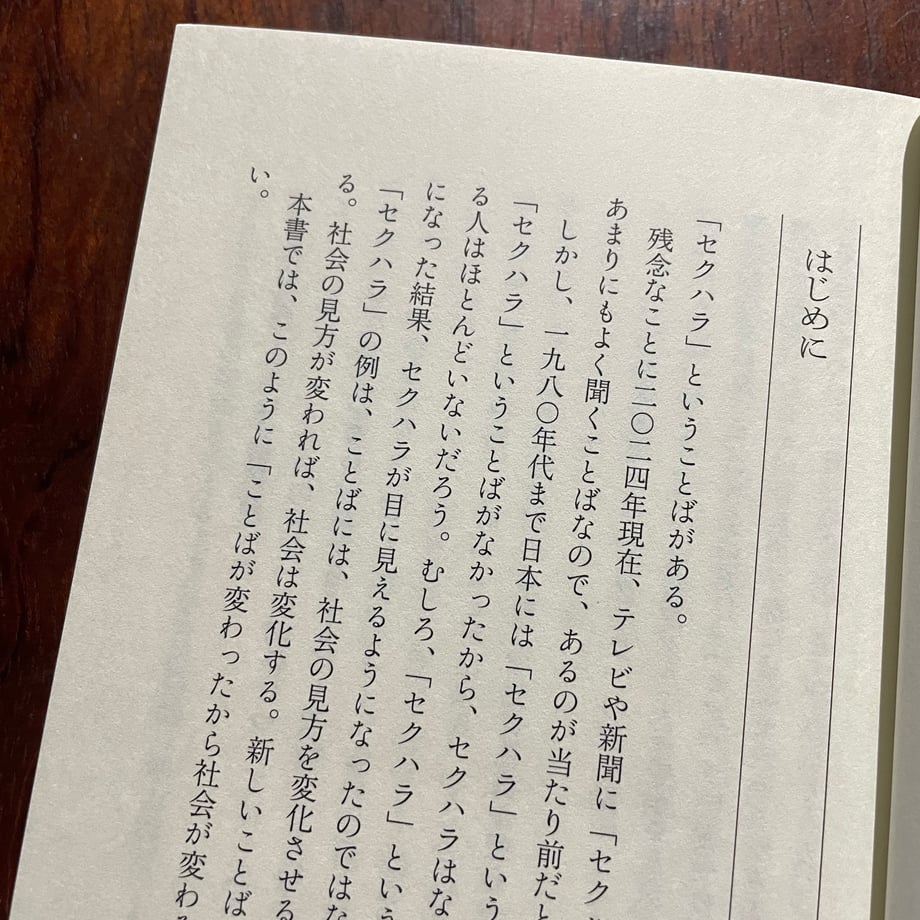 はじめに
「セクハラ」ということばがある。
残念なことに二〇二四年現在、テレビや新聞に「セク
あまりにもよく聞くことばなので、あるのが当たり前だと
しかし、一九八〇年代まで日本には「セクハラ」という
「セクハラ」ということばがなかったから、セクハラはな
る人はほとんどいないだろう。むしろ、「セクハラ」という
になった結果、セクハラが目に見えるようになったのではな
「セクハラ」の例は、ことばには、社会の見方を変化させる
る。社会の見方が変われば、社会は変化する。新しいことば
い。
本書では、このように「ことばが変わったから社会が変わ